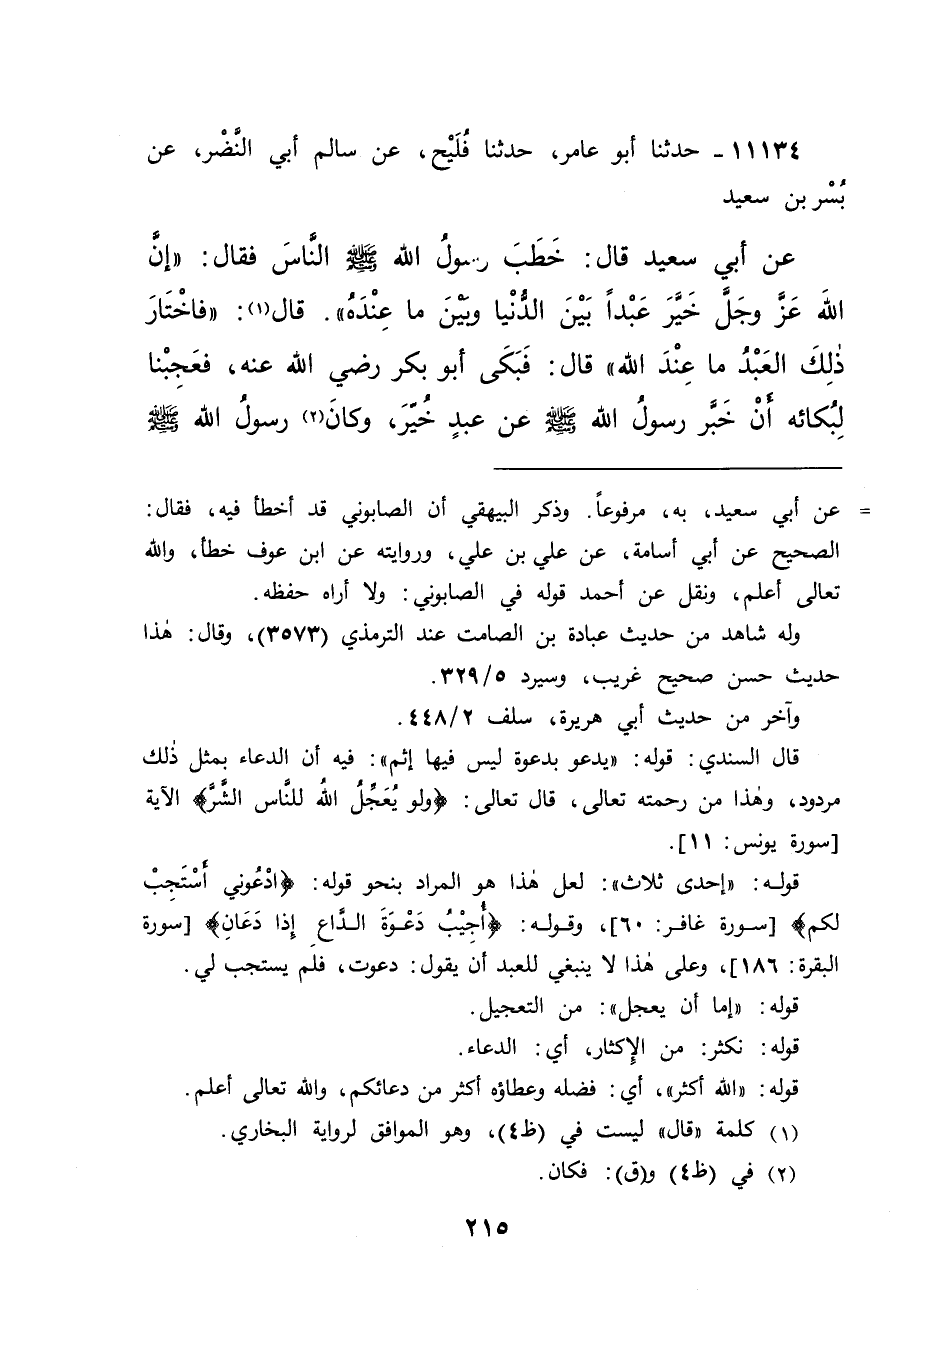 ١١١٣٤ ـ حدثنا أبو عامر، حدثنا فُلَيْح، عن سالم أبي النَّضْر، عن
بُسْر بن سعيد
عن أبي سعيد قال: خَطَبَ رسولُ الله ﷺ النَّاسَ فقال: «إنَّ
اللهَ عَزَّ وجَلَّ خَيَّرَ عَبْداً بَيْنَ الدُّنْيا وبَيْنَ ما عِنْدَهُ». قال(١): «فاخْتَارَ
ذٰلِكَ العَبْدُ ما عِنْدَ الله» قال: فَبَكَى أبو بكر رضي الله عنه، فعَجِبْنا
لِبُكائه أَنْ خَبَّر رسولُ الله ﷺ عن عبدٍ خُيِّرَ، وكانَ(٢) رسولُ الله ﷺ
= عن أبي سعيد، به، مرفوعاً. وذكر البيهقي أن الصابوني قد أخطأ فيه، فقال:
الصحيح عن أبي أسامة، عن علي بن علي، وروايته عن ابن عوف خطأ، والله
تعالى أعلم، ونقل عن أحمد قوله في الصابوني: ولا أراه حفظه.
وله شاهد من حديث عبادة بن الصامت عند الترمذي (٣٥٧٣)، وقال: هٰذا
حديث حسن صحيح غريب، وسيرد ٣٢٩/٥.
وآخر من حديث أبي هريرة، سلف ٤٤٨/٢.
قال السندي: قوله: «يدعو بدعوة ليس فيها إثم»: فيه أن الدعاء بمثل ذٰلك
مردود، وهٰذا من رحمته تعالى، قال تعالى: ﴿ولو يُعَجِّلُ اللهُ للنَّاس الشَّرَّ﴾ الآية
[سورة يونس: ١١].
قوله: «إحدى ثلاث»: لعل هٰذا هو المراد بنحو قوله: ﴿ادْعُوني أَسْتَجِبْ
لكم﴾ [سورة غافر: ٦٠]، وقوله: ﴿أُجِيْبُ دَعْوَةَ الدَّاعِ إِذا دَعَانِ﴾ [سورة
البقرة: ١٨٦]، وعلى هٰذا لا ينبغي للعبد أن يقول: دعوت، فلم يستجب لي.
قوله: «إما أن يعجل»: من التعجيل.
قوله: نكثر: من الإكثار، أي: الدعاء.
قوله: «الله أكثر»، أي: فضله وعطاؤه أكثر من دعائكم، والله تعالى أعلم.
(١) كلمة «قال» ليست في (ظ٤)، وهو الموافق لرواية البخاري.
(٢) في (ظ٤) و(ق): فكان.
٢١٥